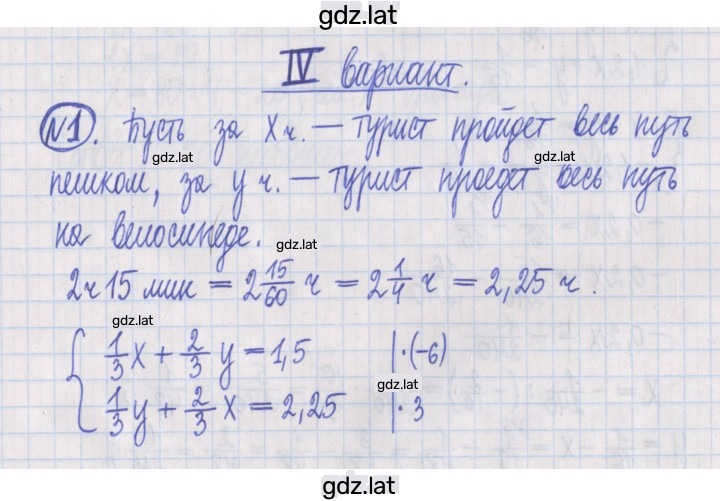 gdz.lat
IV вариант.
№1. Пусть за x ч. — турист пройдет весь путь
gdz.lat gdz.lat
пешком, за y ч. — турист проедет весь путь
на велосипеде. gdz.lat
2ч 15 мин = 2 15/60 ч = 2 1/4 ч = 2,25 ч.
gdz.lat
{ 1/3 x + 2/3 y = 1,5 | · (-6)
gdz.lat
1/3 y + 2/3 x = 2,25 | · 3
gdz.lat